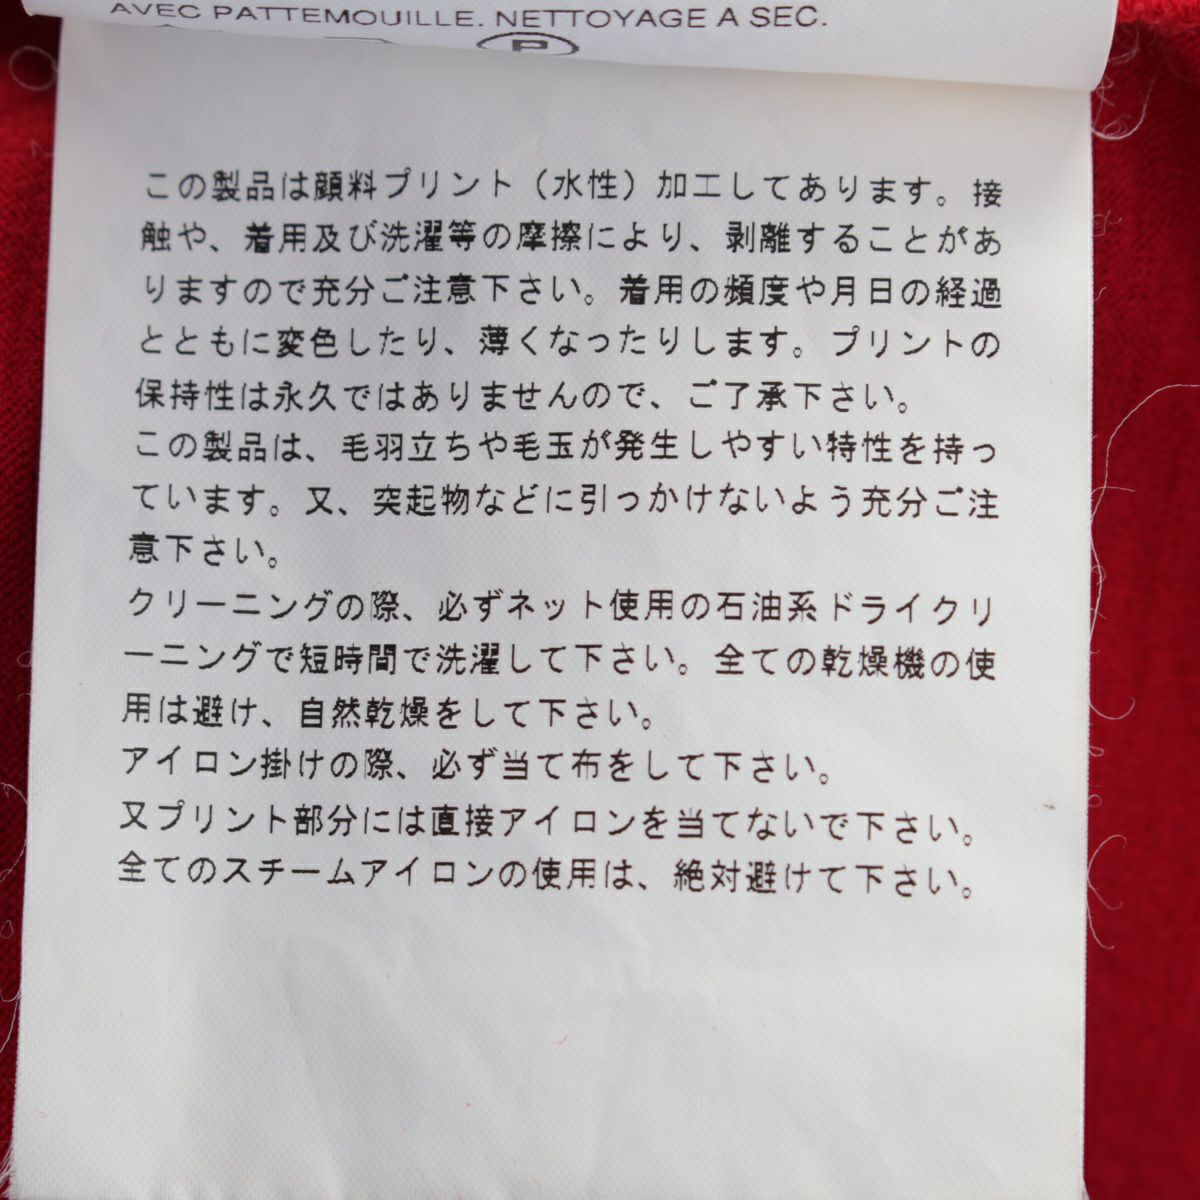 AVEC PATTEMOUILLE. NETTOYAGE A SEC.
P
この製品は顔料プリント（水性）加工してあります。接
触や、着用及び洗濯等の摩擦により、剥離することがあ
りますので充分ご注意下さい。着用の頻度や月日の経過
とともに変色したり、薄くなったりします。プリントの
保持性は永久ではありませんので、ご了承下さい。
この製品は、毛羽立ちや毛玉が発生しやすい特性を持っ
ています。又、突起物などに引っかけないよう充分ご注
意下さい。
クリーニングの際、必ずネット使用の石油系ドライクリ
ーニングで短時間で洗濯して下さい。全ての乾燥機の使
用は避け、自然乾燥をして下さい。
アイロン掛けの際、必ず当て布をして下さい。
又プリント部分には直接アイロンを当てないで下さい。
全てのスチームアイロンの使用は、絶対避けて下さい。